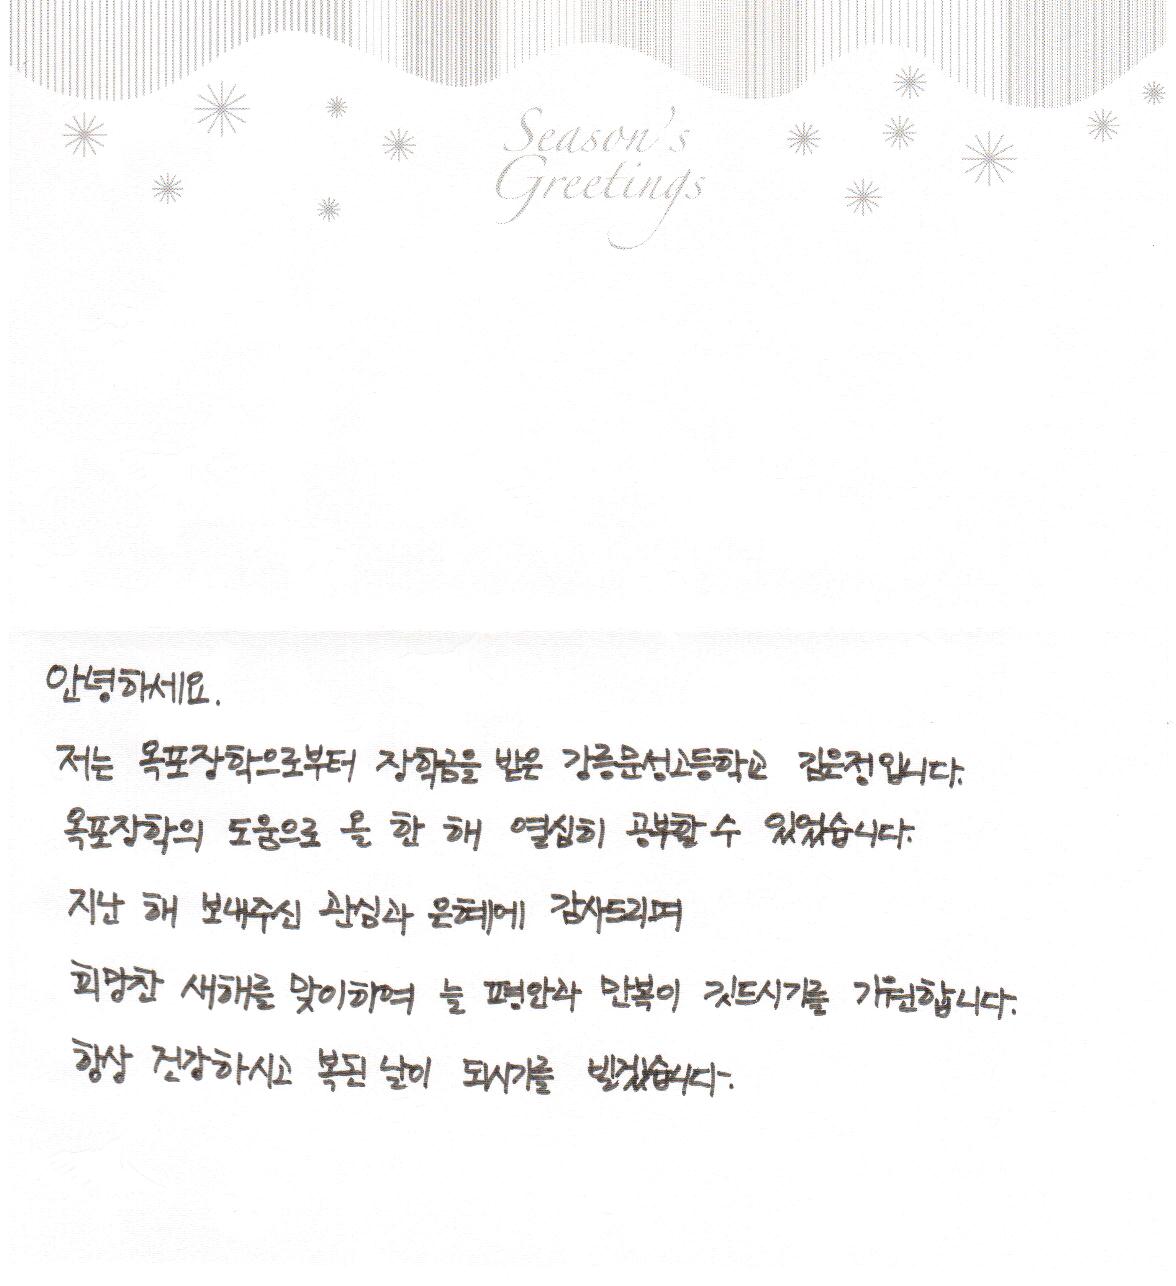 Season's
Greetings
안녕하세요.
저는 옥포장학으로부터 장학금을 받은 강릉문성고등학교 김윤정입니다.
옥포장학의 도움으로 올 한 해 열심히 공부할 수 있었습니다.
지난 해 보내주신 관심과 은혜에 감사드리며
희망찬 새해를 맞이하며 늘 평안과 만복이 깃드시기를 기원합니다.
항상 건강하시고 복된 날이 되시기를 빌겠습니다.